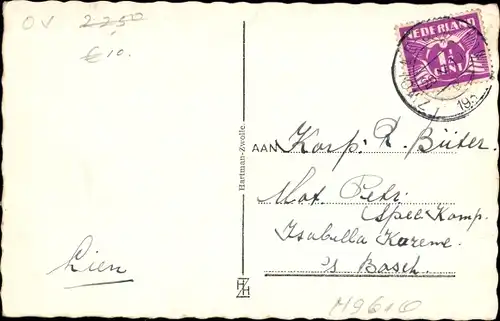 OV 2250
€ 10.
NEDERLAND
1½
CENT
Hartman-Zwolle.
AAN Korp. R. Büter.
Mot. Petr.
Spec Komp.
Isabella Kazerne
's Bosch.
Lien
HH
M9610